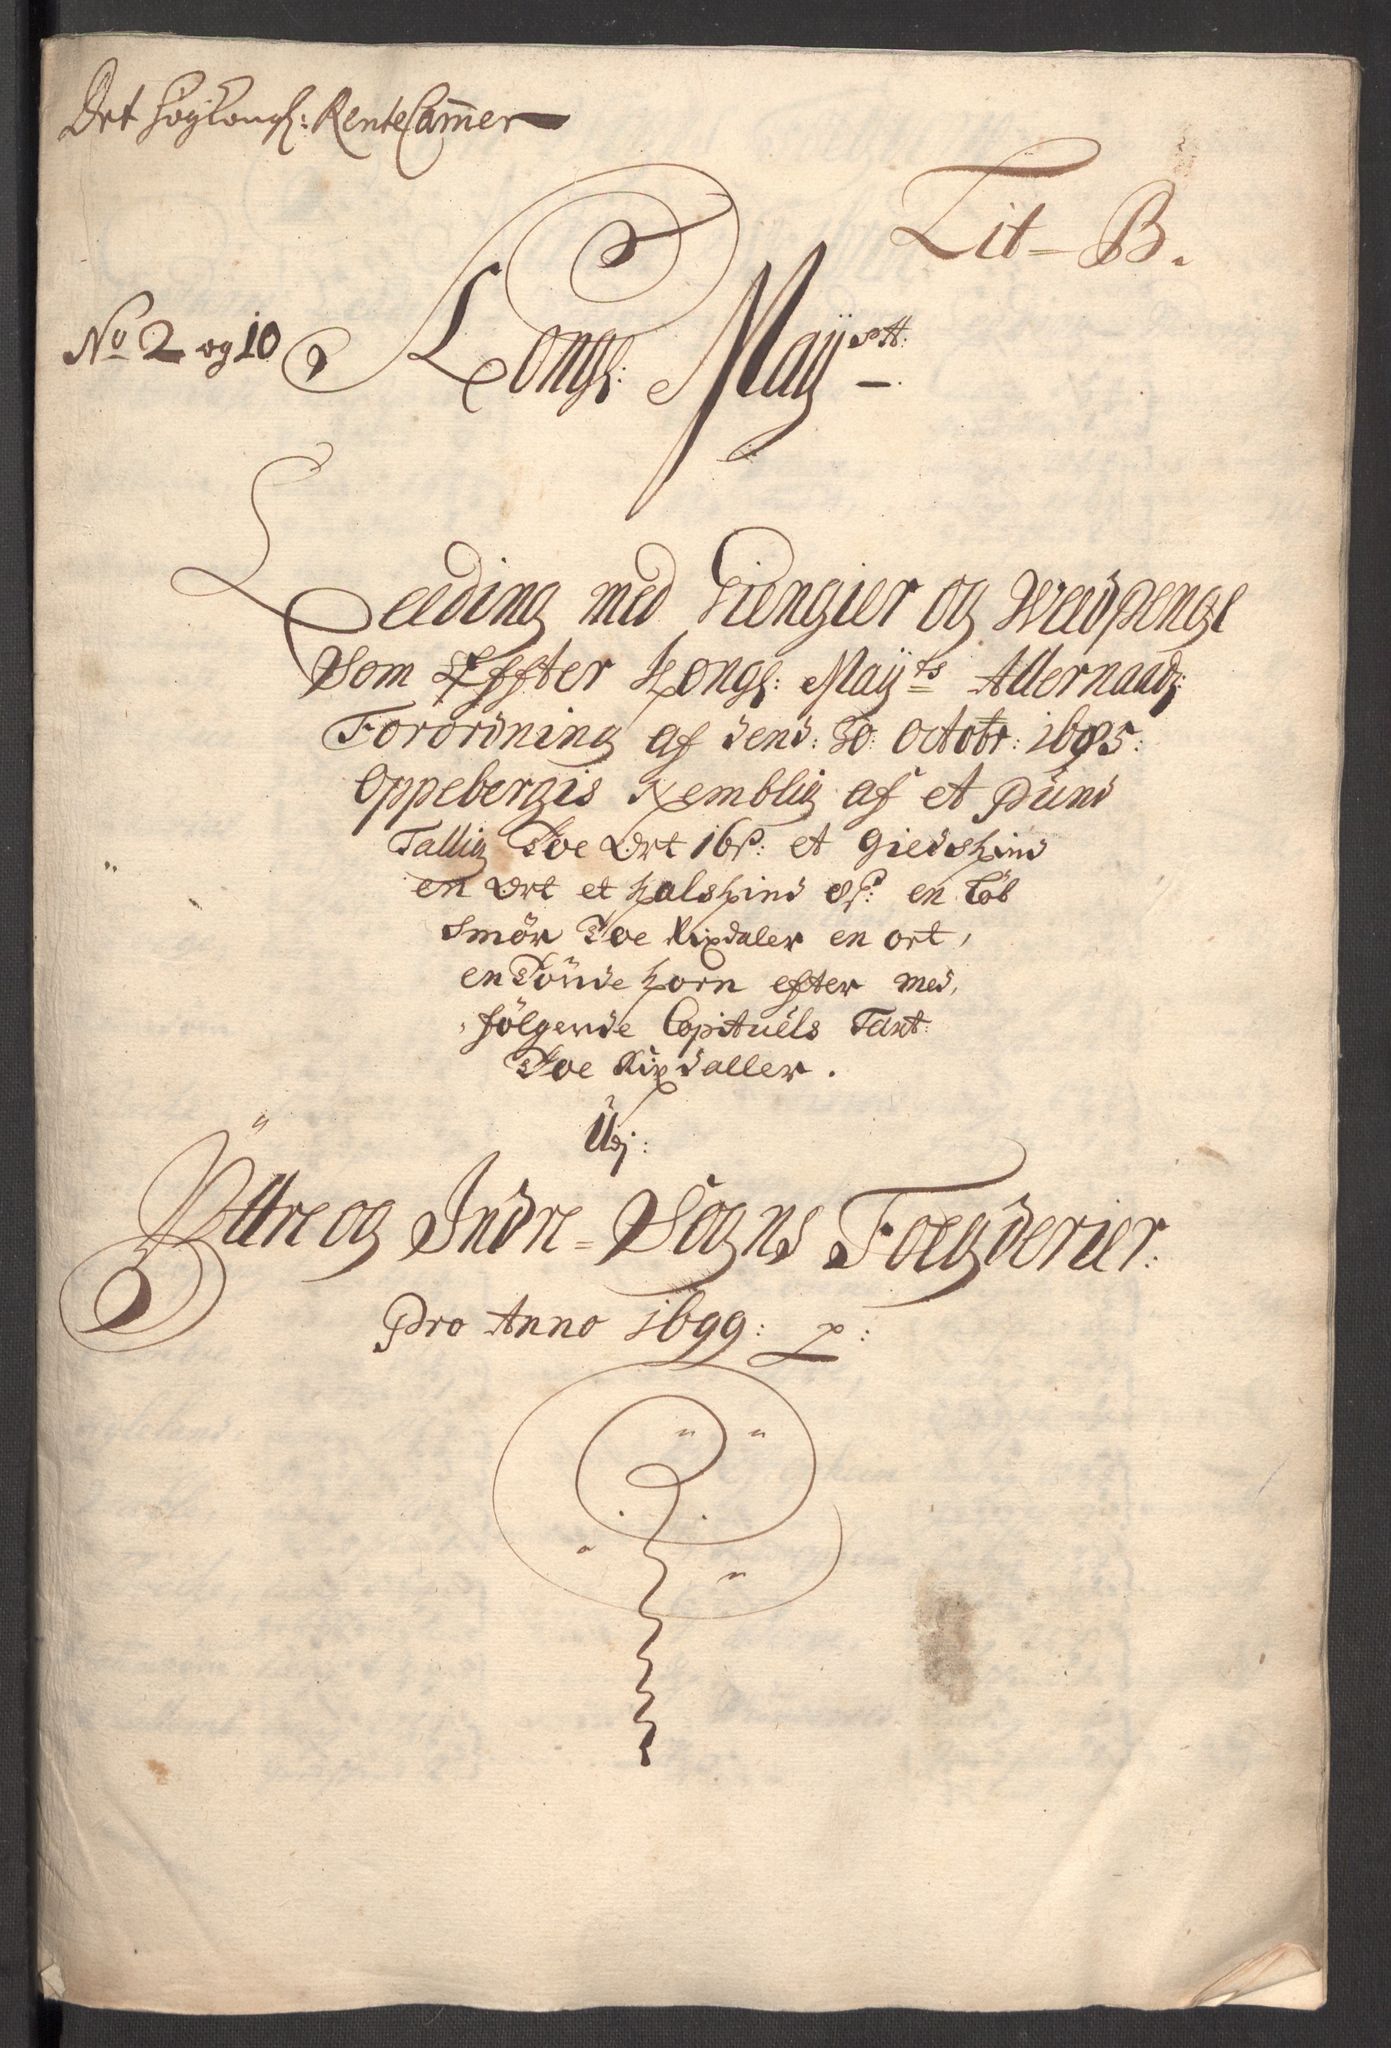 Det höylongl: RenteCammer
Lit- B.
No 2 og 10
Kongl: Mayestt:
Leeding med Giengier og Weedpenge
Som Effter Kongl: Mayts Allernaadg:
Forordning af dend: 30: Octobr: 1695:
Oppebergis Nemblig af et Pund
Tallig Toe Ort 16ß: et Giedskind
en Ort et Kalskind 8ß: en Löb
Smör Toe Rixdaler en ort,
en Tönde Korn efter med,
fölgende Capituels Taxt:
Toe Rixdaller.
Udj:
Yttre og Indre- Sogns Foegderier:
Pro Anno 1699: